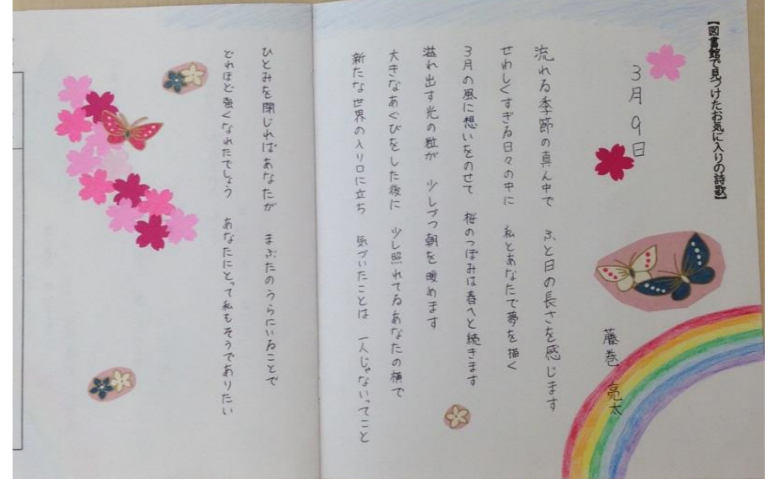 【図書館で見つけたお気に入りの詩歌】
3月9日
藤巻 亮太
流れる季節の真ん中で ふと日の長さを感じます
せわしくすぎる日々の中に 私とあなたで夢を描く
3月の風に想いをのせて 桜のつぼみは春へと続きます
溢れ出す光の粒が 少しづつ朝を暖めます
大きなあくびをした後に 少し照れてるあなたの横で
新たな世界の入り口に立ち 気づいたことは 一人じゃないってこと
ひとみを閉じればあなたが まぶたのうらにいることで
どれほど強くなれたでしょう あなたにとって私もそうでありたい